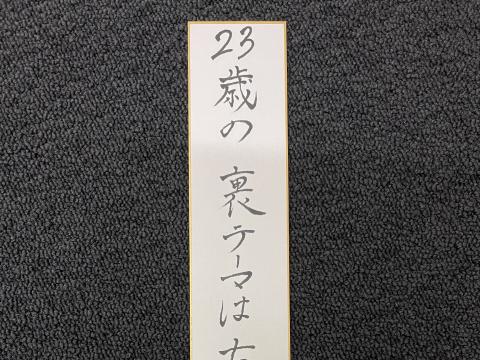 23歳の裏テーマは